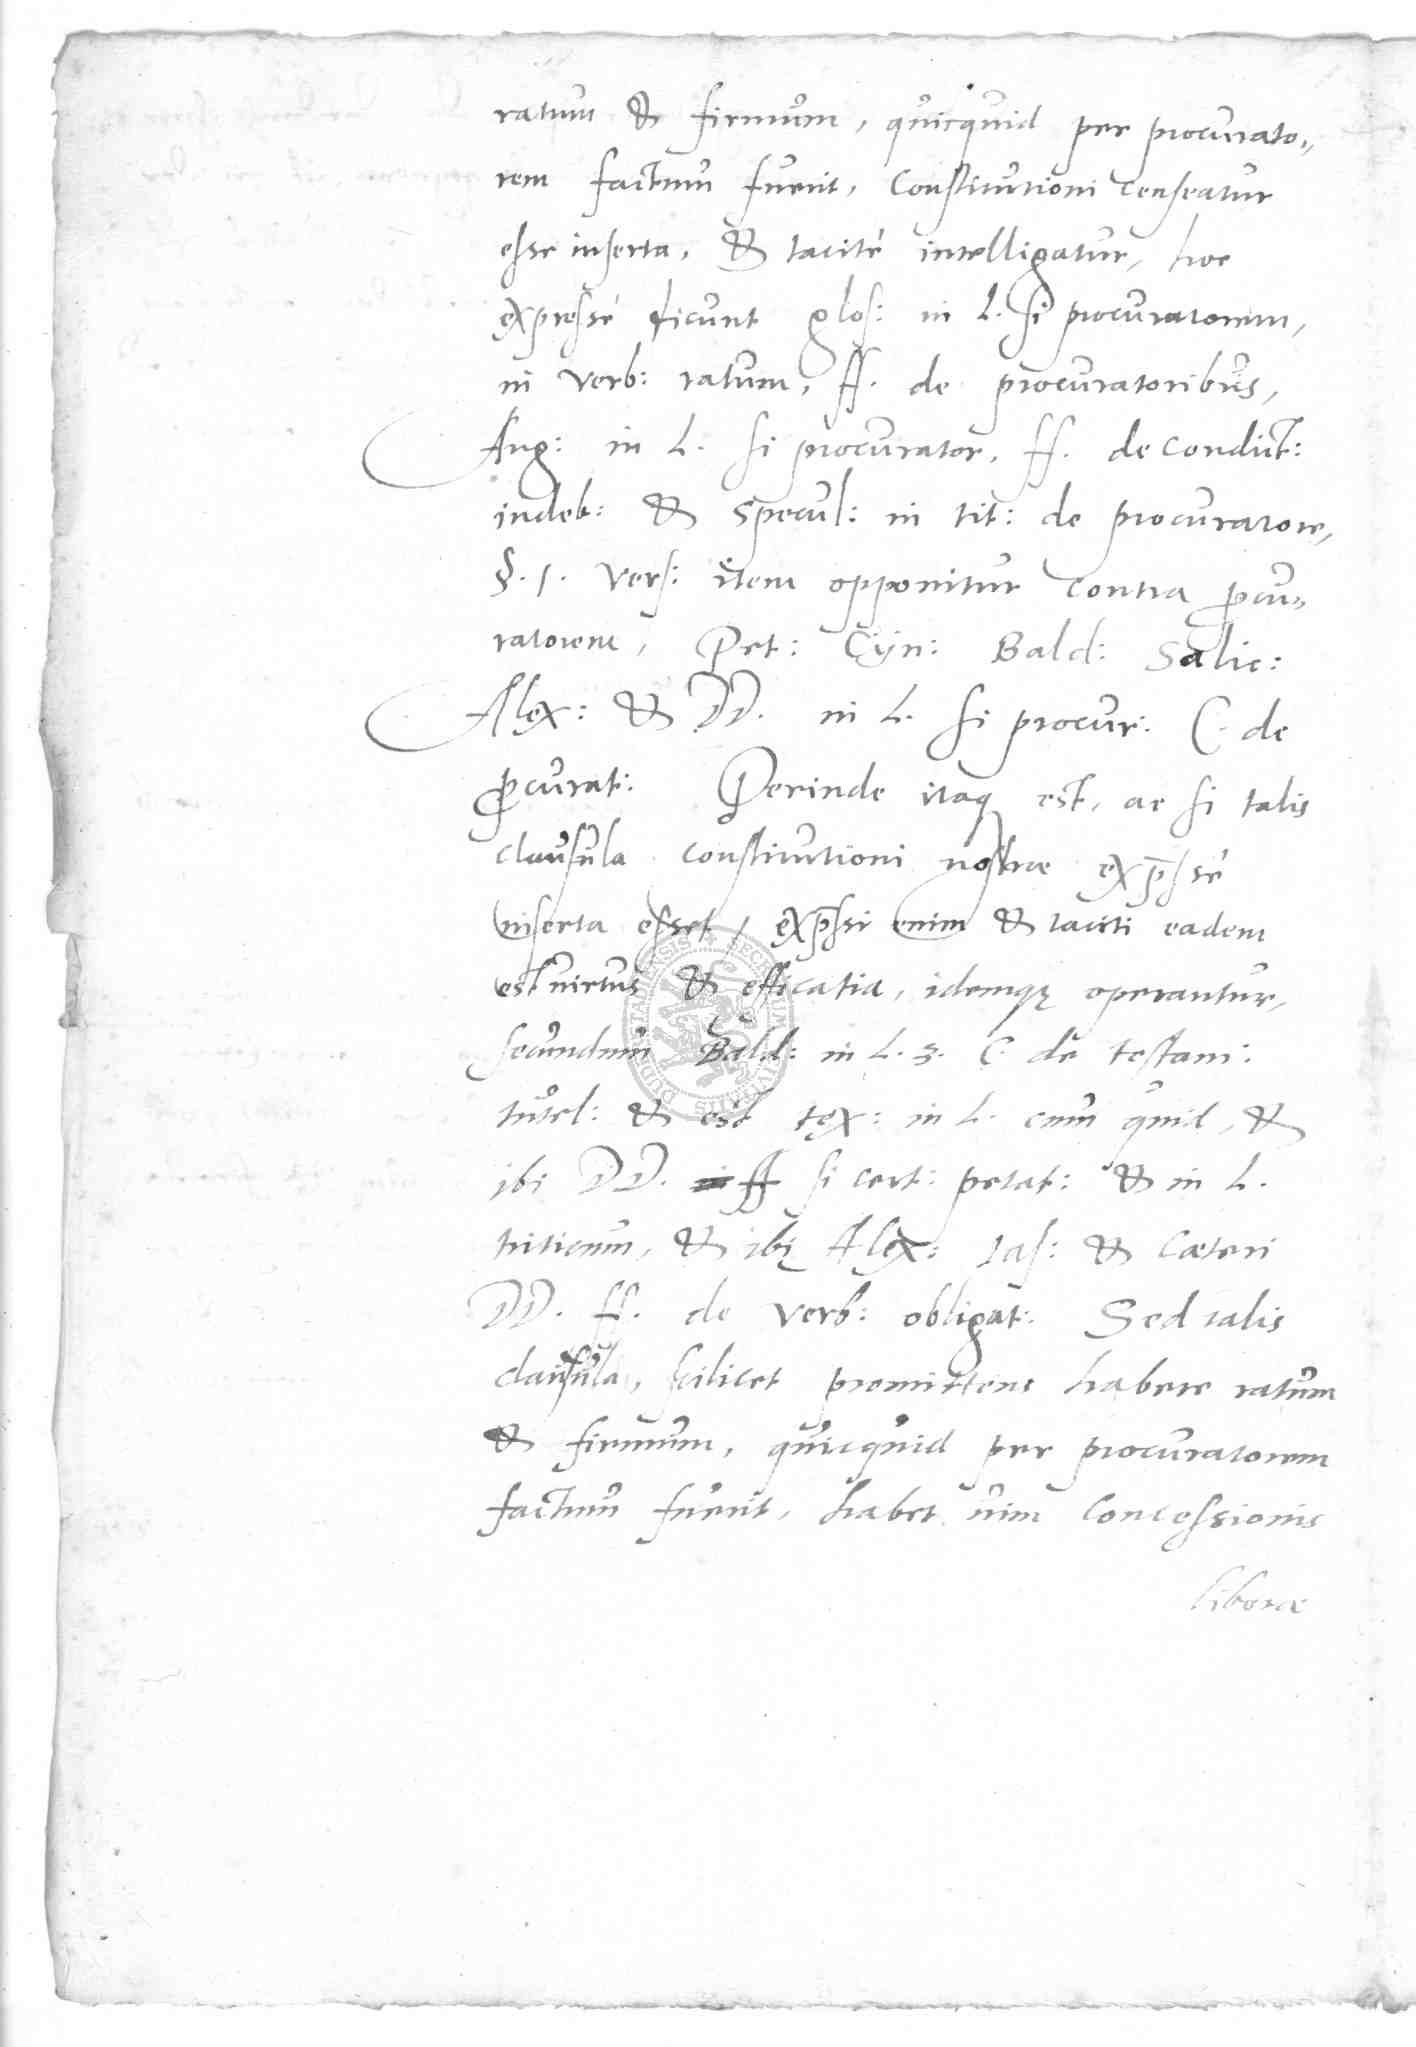 ratum & firmum, quicquid per procurato„
rem factum fuerit, Constitutioni censeatur
esse inserta, & tacité intelligatur, hoc
expressé dicunt glos: in L. si procuratorem,
in verb: ratum, ff. de procuratoribus,
Ang: in L. si procurator, ff. de condict:
indeb: & Specul: in tit: de procuratore,
§. 1. vers: item opponitur contra pcu„
ratorem, Pet: Cyn: Bald: Salic:
Alex: & DD. in L. si procur: C. de
pcurat: Perinde itaq est, ac si talis
clausula constitutioni nostrae exp̄ssé
inserta esset, exp̄ssi enim & taciti eadem
est virtus & efficatia, idemqꝫ operantur,
secundum Bald: in L. 3. C. de testam:
tutel: & est tex: in L. cum quid, &
ibi DD. ff si cert: petat: & in L.
triticum, & ibi Alex: Ias: & Caeteri
DD. ff. de verb: obligat: Sed talis
clausula, scilicet promittens habere ratum
& firmum, quicquid per procuratorem
factum fuerit, habet vim Concessionis
liberae
SECRETUM CIVITATIS RUDERSTADIENSIS